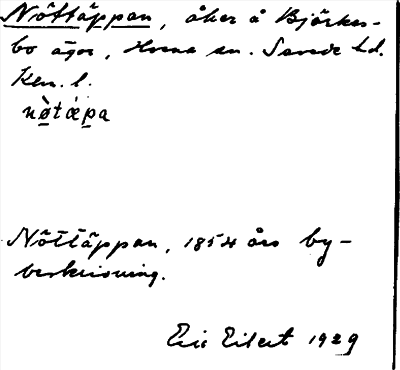 Nöttäppan, åker å Björkes-
bo ägor, Hvena sn. Sevede hd.
Klm. l.
nø̀tǽpa
Nöttäppan, 1854 års by-
beskrivning.
Eric Eilert 1929